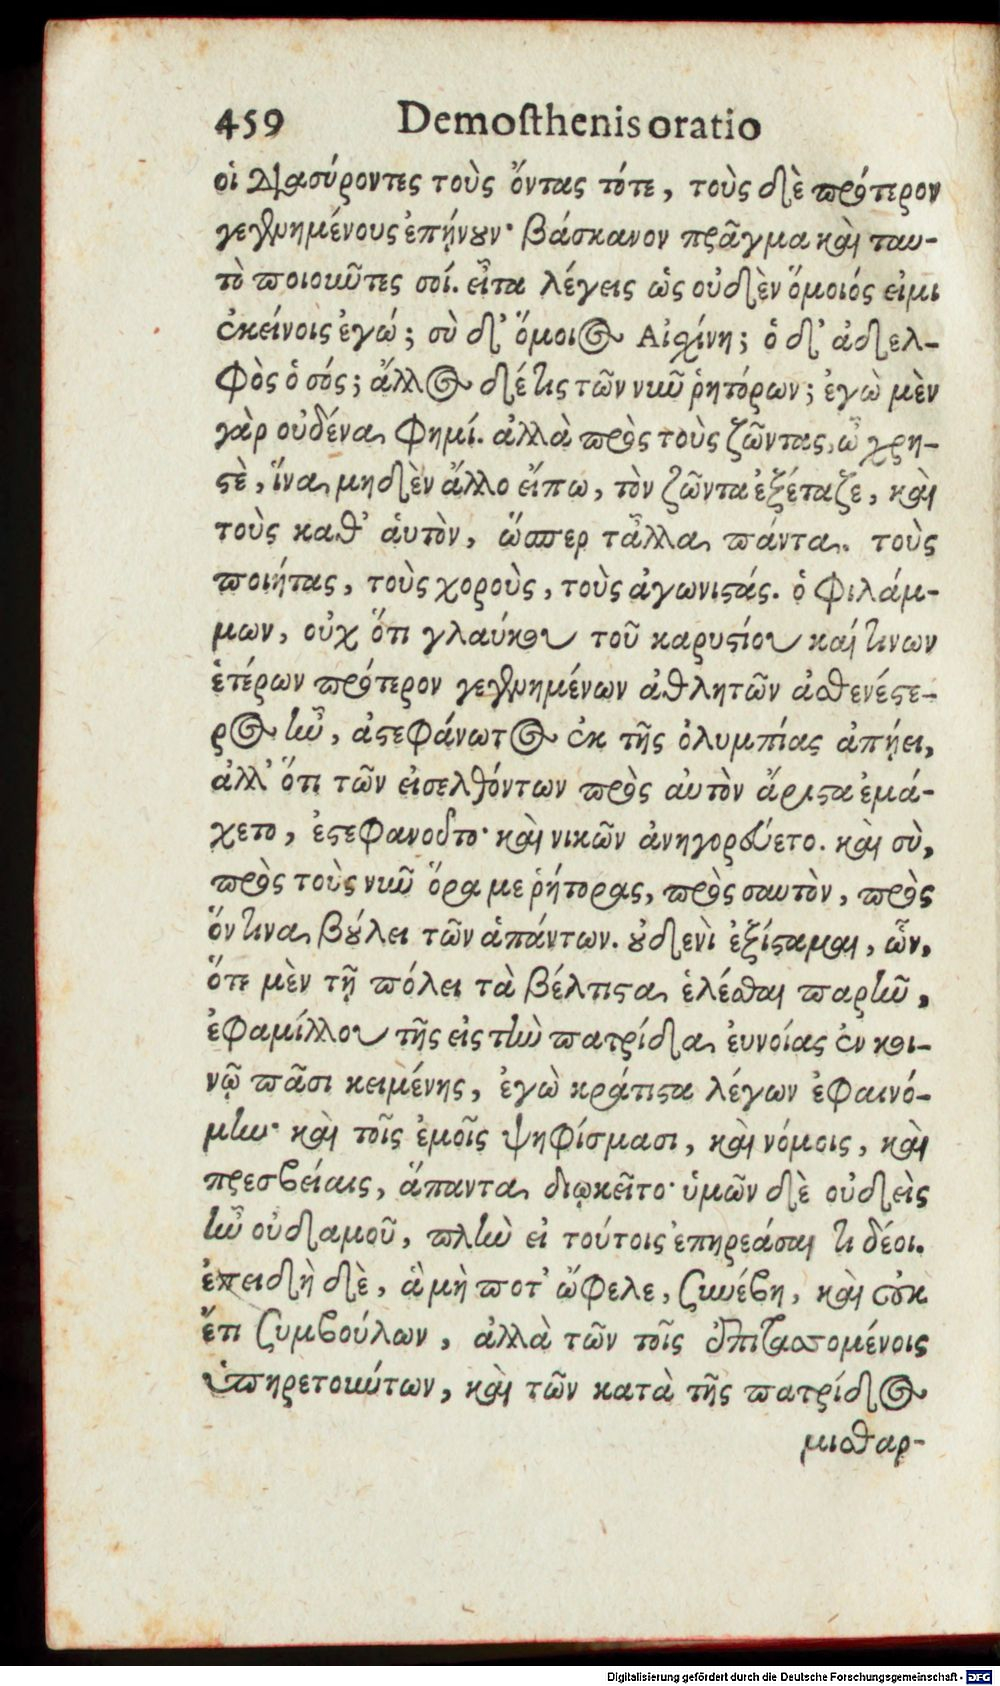 459 Demosthenis oratio
οἱ διασύροντες τοὺς ὄντας τότε, τοὺς δὲ πρότερον
γεγενημένους ἐπῄνουν· βάσκανον πρᾶγμα καὶ ταυ-
τὸ ποιοῦντες σοί. εἶτα λέγεις ὡς οὐδὲν ὅμοιός εἰμι
ἐκείνοις ἐγώ; σὺ δ' ὅμοιος Αἰσχίνη; ὁ δ' ἀδελ-
φὸς ὁ σός; ἄλλος δέ τις τῶν νῦν ῥητόρων; ἐγὼ μὲν
γὰρ οὐδένα φημί. ἀλλὰ πρὸς τοὺς ζῶντας, ὦ χρη-
στὲ, ἵνα μηδὲν ἄλλο εἴπω, τὸν ζῶντα ἐξέταζε, καὶ
τοὺς καθ' ἁυτὸν, ὥσπερ τἆλλα πάντα. τοὺς
ποιήτας, τοὺς χοροὺς, τοὺς ἀγωνιστάς. ὁ Φιλάμ-
μων, οὐχ ὅτι γλαύκου τοῦ καρυστίου καί τινων
ἑτέρων πρότερον γεγενημένων ἀθλητῶν ἀσθενέστε-
ρος ἦν, ἀστεφάνωτος ἐκ τῆς ὀλυμπίας ἀπῄει,
ἀλλ' ὅτι τῶν εἰσελθόντων πρὸς αὐτὸν ἄριστα ἐμά-
χετο, ἐστεφανοῦτο· καὶ νικῶν ἀνηγορεύετο. καὶ σὺ,
πρὸς τοὺς νῦν ὅρα με ῥήτορας, πρὸς σαυτὸν, πρὸς
ὅν τινα βούλει τῶν ἁπάντων. οὐδενὶ ἐξίσταμαι, ὧν,
ὅτε μὲν τῇ πόλει τὰ βέλτιστα ἑλέσθαι παρῆν,
ἐφαμίλλου τῆς εἰς τὴν πατρίδα ἐυνοίας ἐν κοι-
νῷ πᾶσι κειμένης, ἐγὼ κράτιστα λέγων ἐφαινό-
μην· καὶ τοῖς ἐμοῖς ψηφίσμασι, καὶ νόμοις, καὶ
πρεσβείαις, ἅπαντα διῳκεῖτο· ὑμῶν δὲ οὐδεὶς
ἦν οὐδαμοῦ, πλὴν εἰ τούτοις ἐπηρεάσαι τι δέοι.
ἐπειδὴ δὲ, ἃ μὴ ποτ' ὤφελε, συνέβη, καὶ οὐκ
ἔτι συμβούλων, ἀλλὰ τῶν τοῖς ἐπιταττομένοις
ὑπηρετούντων, καὶ τῶν κατὰ τῆς πατρίδος
μισθαρ-
Digitalisierung gefördert durch die Deutsche Forschungsgemeinschaft - DFG